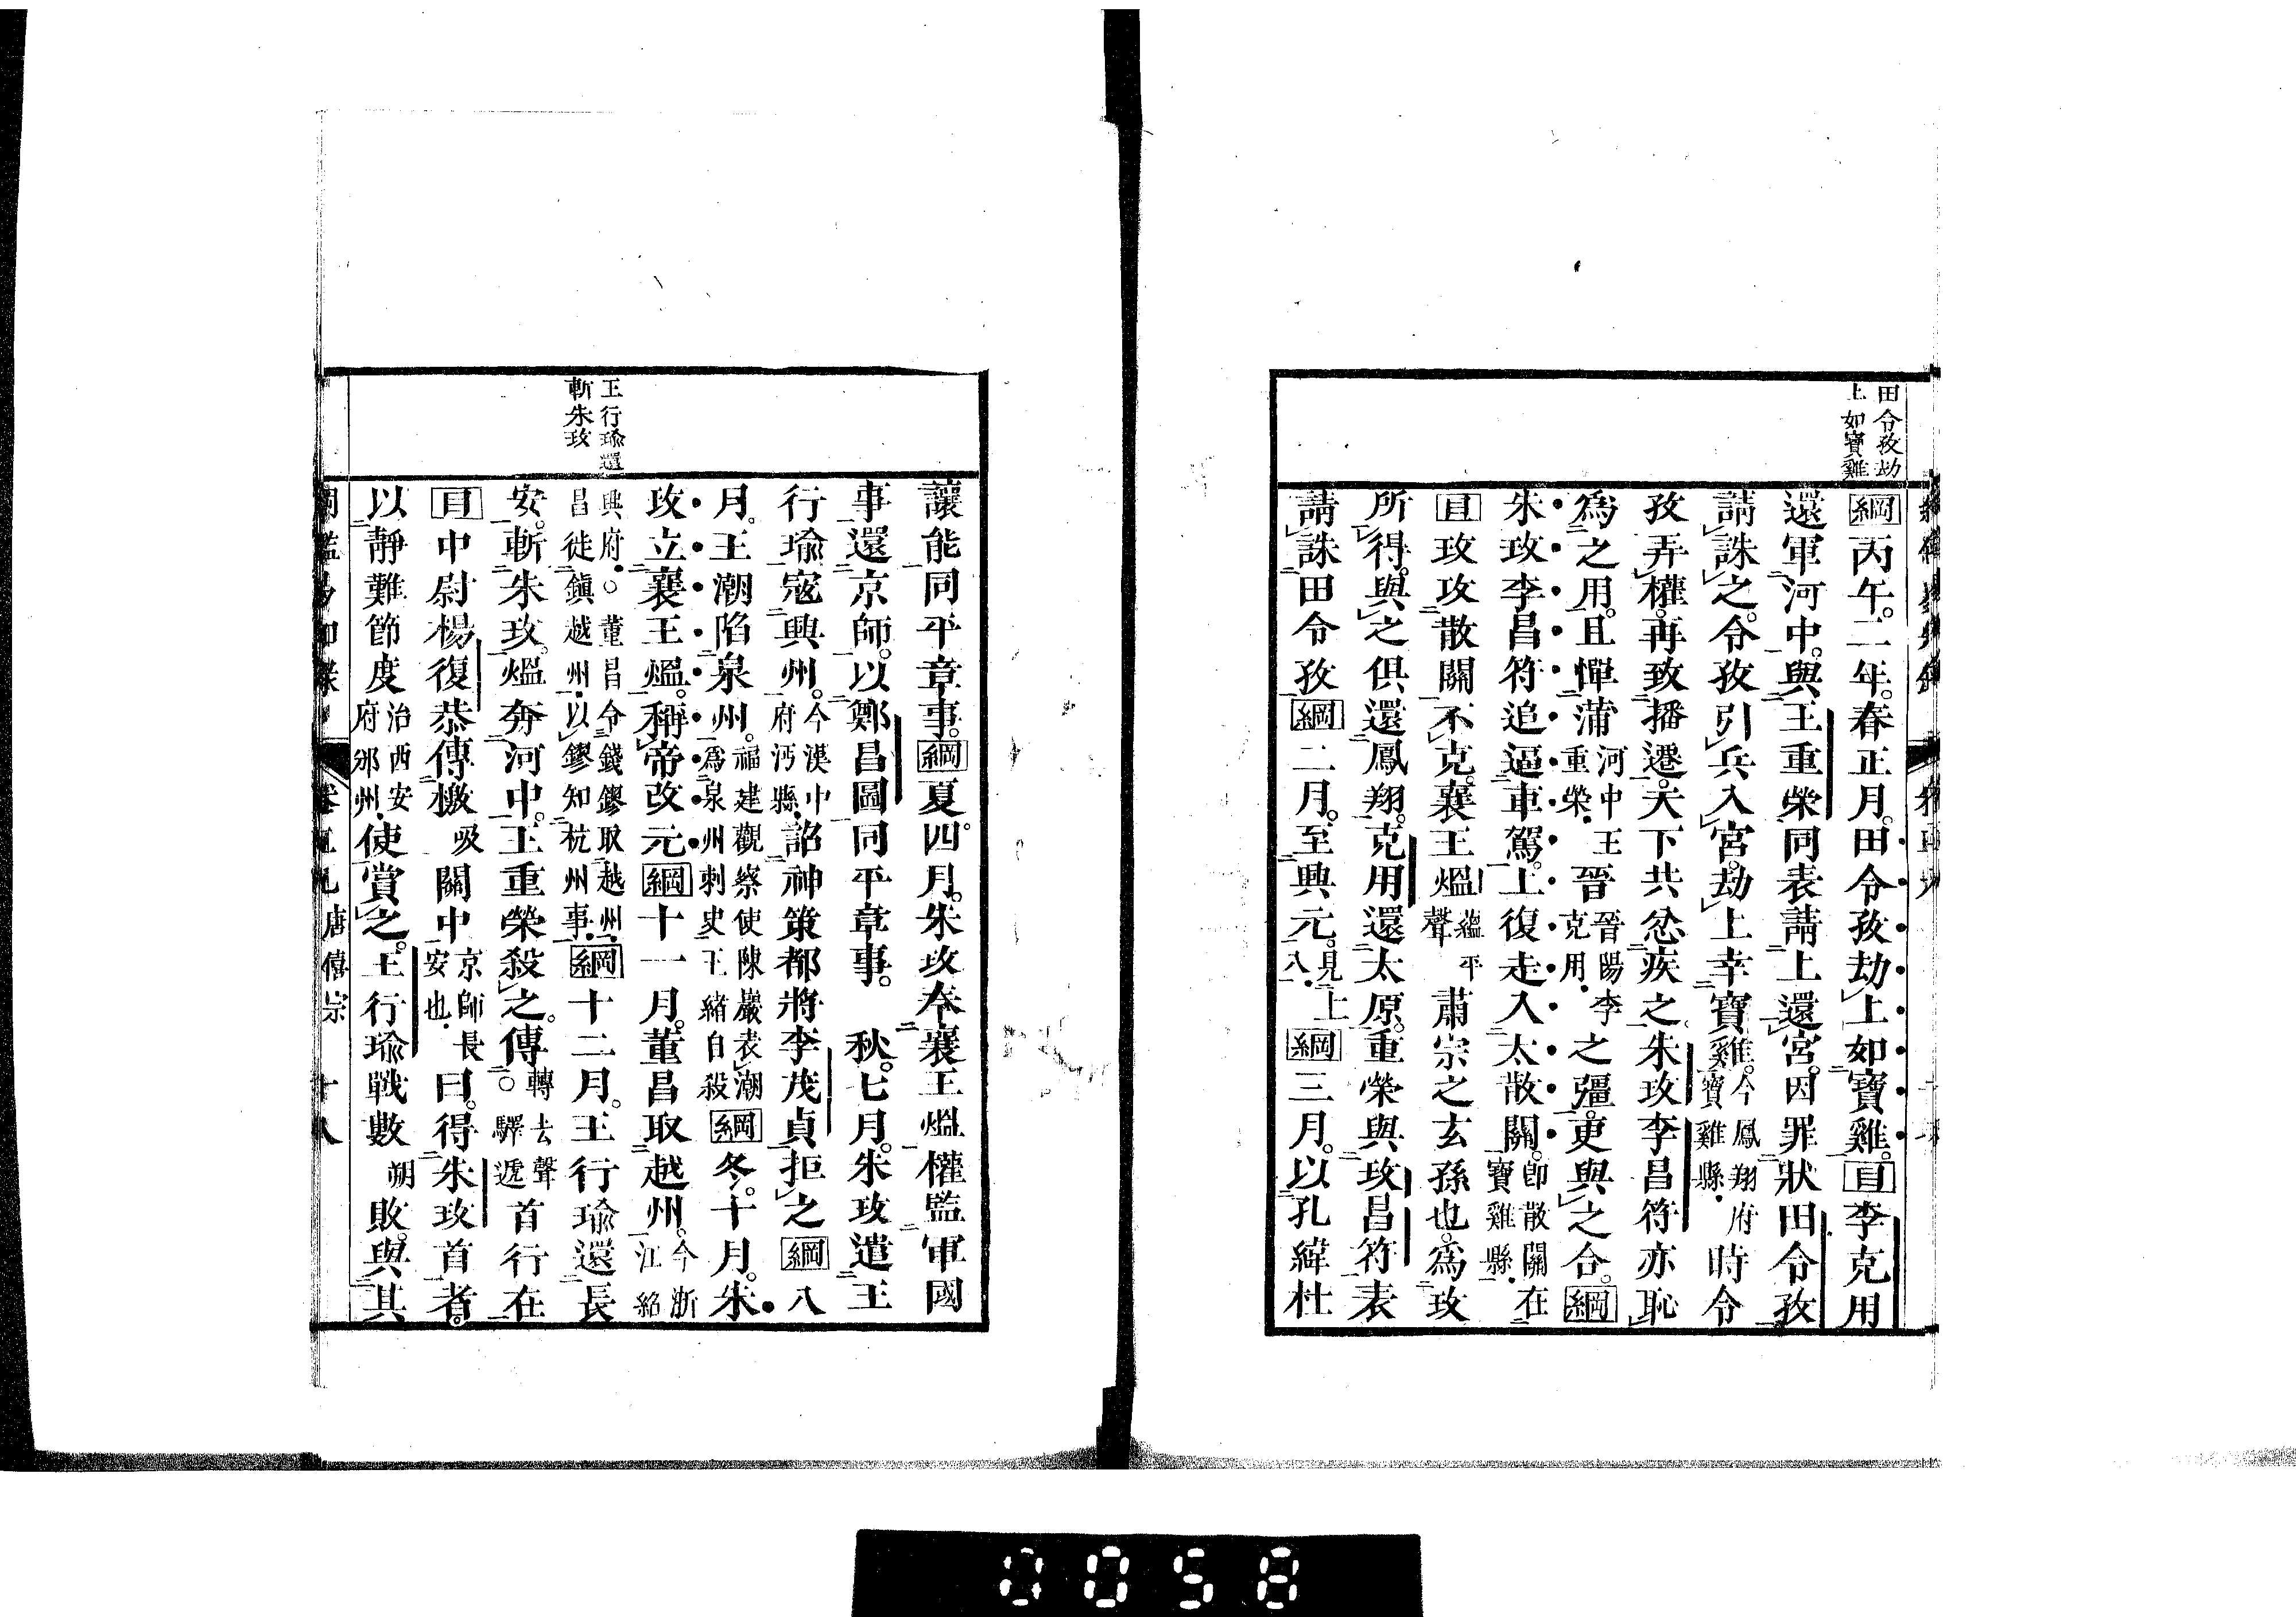 田令孜劫
上如寶雞
綱丙午。二年。春正月。田令孜劫上如寶雞。目李克用
還軍河中。與王重榮同表請上還宮。因罪狀田令孜
請誅之。令孜引兵入宮。劫上幸寶雞。今鳳翔府寶雞縣。時令
孜弄權。再致播遷。天下共忿疾之。朱玫李昌符亦恥
爲之用。且憚蒲河中王重榮。晉晉陽李克用。之彊。更與之合。綱
朱玫李昌符追逼車駕。上復走入大散關。卽散關在寶雞縣。
目玫攻散關不克。襄王熅蘊平聲肅宗之玄孫也。爲玫
所得。與之俱還鳳翔。克用還太原。重榮與玫昌符表
請誅田令孜綱二月。至興元。見上八。綱三月。以孔緯杜
王行瑜還
斬朱玫
讓能同平章事。綱夏四月。朱玫奉襄王熅權監軍國
事還京師。以鄭昌圖同平章事。 秋。七月。朱玫遣王
行瑜寇興州。今漢中府沔縣。詔神策都將李茂貞拒之綱八
月。王潮陷泉州。福建觀察使陳巖表潮爲泉州刺史王緒自殺綱冬。十月。朱
玫立襄王熅。稱帝改元綱十一月。董昌取越州。今浙江紹
興府。○董昌令錢鏐取越州。昌徙鎭越州。以鏐知杭州事。綱十二月。王行瑜還長
安。斬朱玫。熅奔河中。王重榮殺之。傳轉去聲○驛遞首行在
目中尉楊復恭傳檄吸關中京師長安也。曰。得朱玫首者。
以靜難節度治西安府邠州。使賞之。王行瑜戰數朔敗。與其
唐僖宗 十八
0058